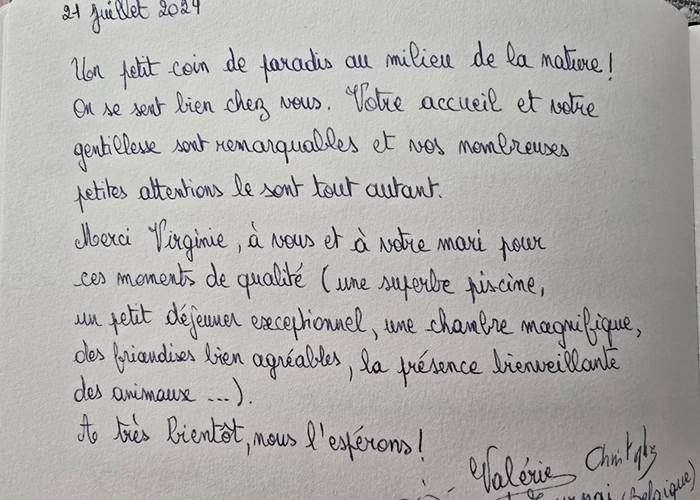 21 juillet 2024
Un petit coin de paradis au milieu de la nature !
On se sent bien chez vous. Votre accueil et votre
gentillesse sont remarquables et vos nombreuses
petites attentions le sont tout autant.
Merci Virginie, à vous et à votre mari pour
ces moments de qualité (une superbe piscine,
un petit déjeuner exceptionnel, une chambre magnifique,
des friandises bien agréables, la présence bienveillante
des animaux ...).
A très bientôt, nous l'espérons !
Valérie
Belgique)